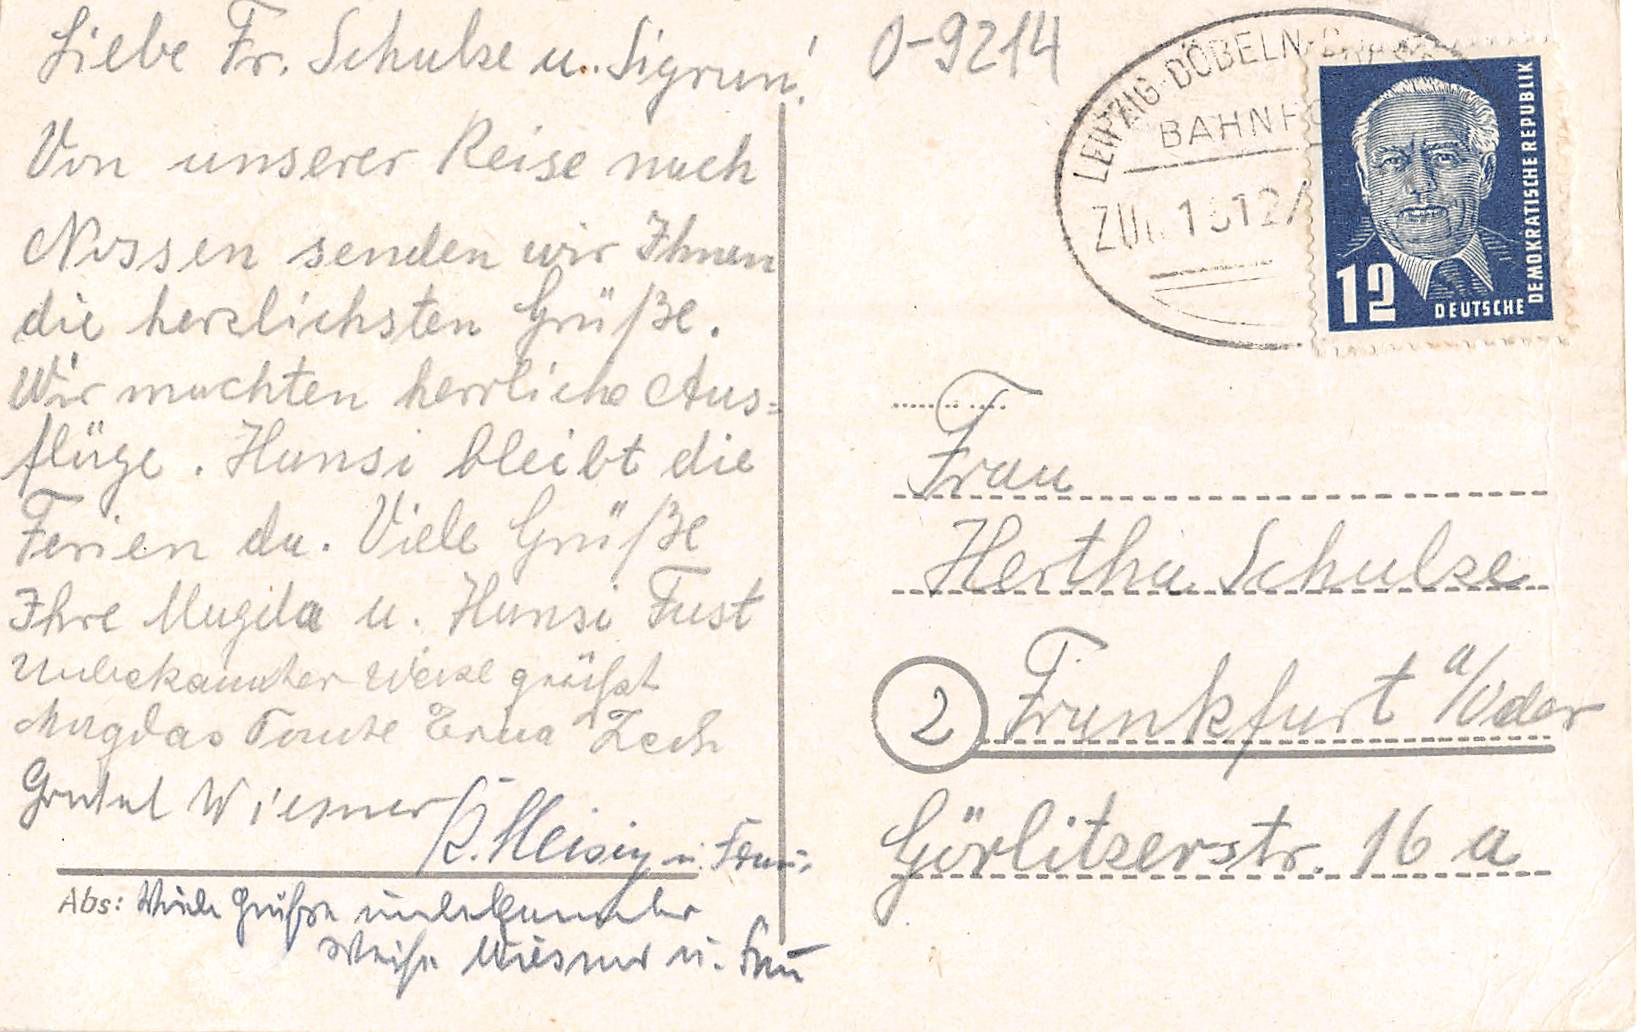 Liebe Fr. Schulze u. Sigrun!
Von unserer Reise nach
Nossen senden wir Ihnen
die herzlichsten Grüße.
Wir machten herrliche Aus=
flüge. Hansi bleibt die
Ferien da. Viele Grüße
Ihre Magda u. Hansi Fust
Unbekannter Weise grüßt
Magdas Tante Erna Zech
Wiesner
u. Frau
Abs: Viele Grüße unbekannter
Weise Wiesner u. Frau
0-9214
LEIPZIG-DÖBELN-
BAHNPO
ZUG
12
DEUTSCHE
DEMOKRATISCHE REPUBLIK
Frau
Hertha Schulze
2 Frankfurt a/Oder
Görlitzerstr. 16 a